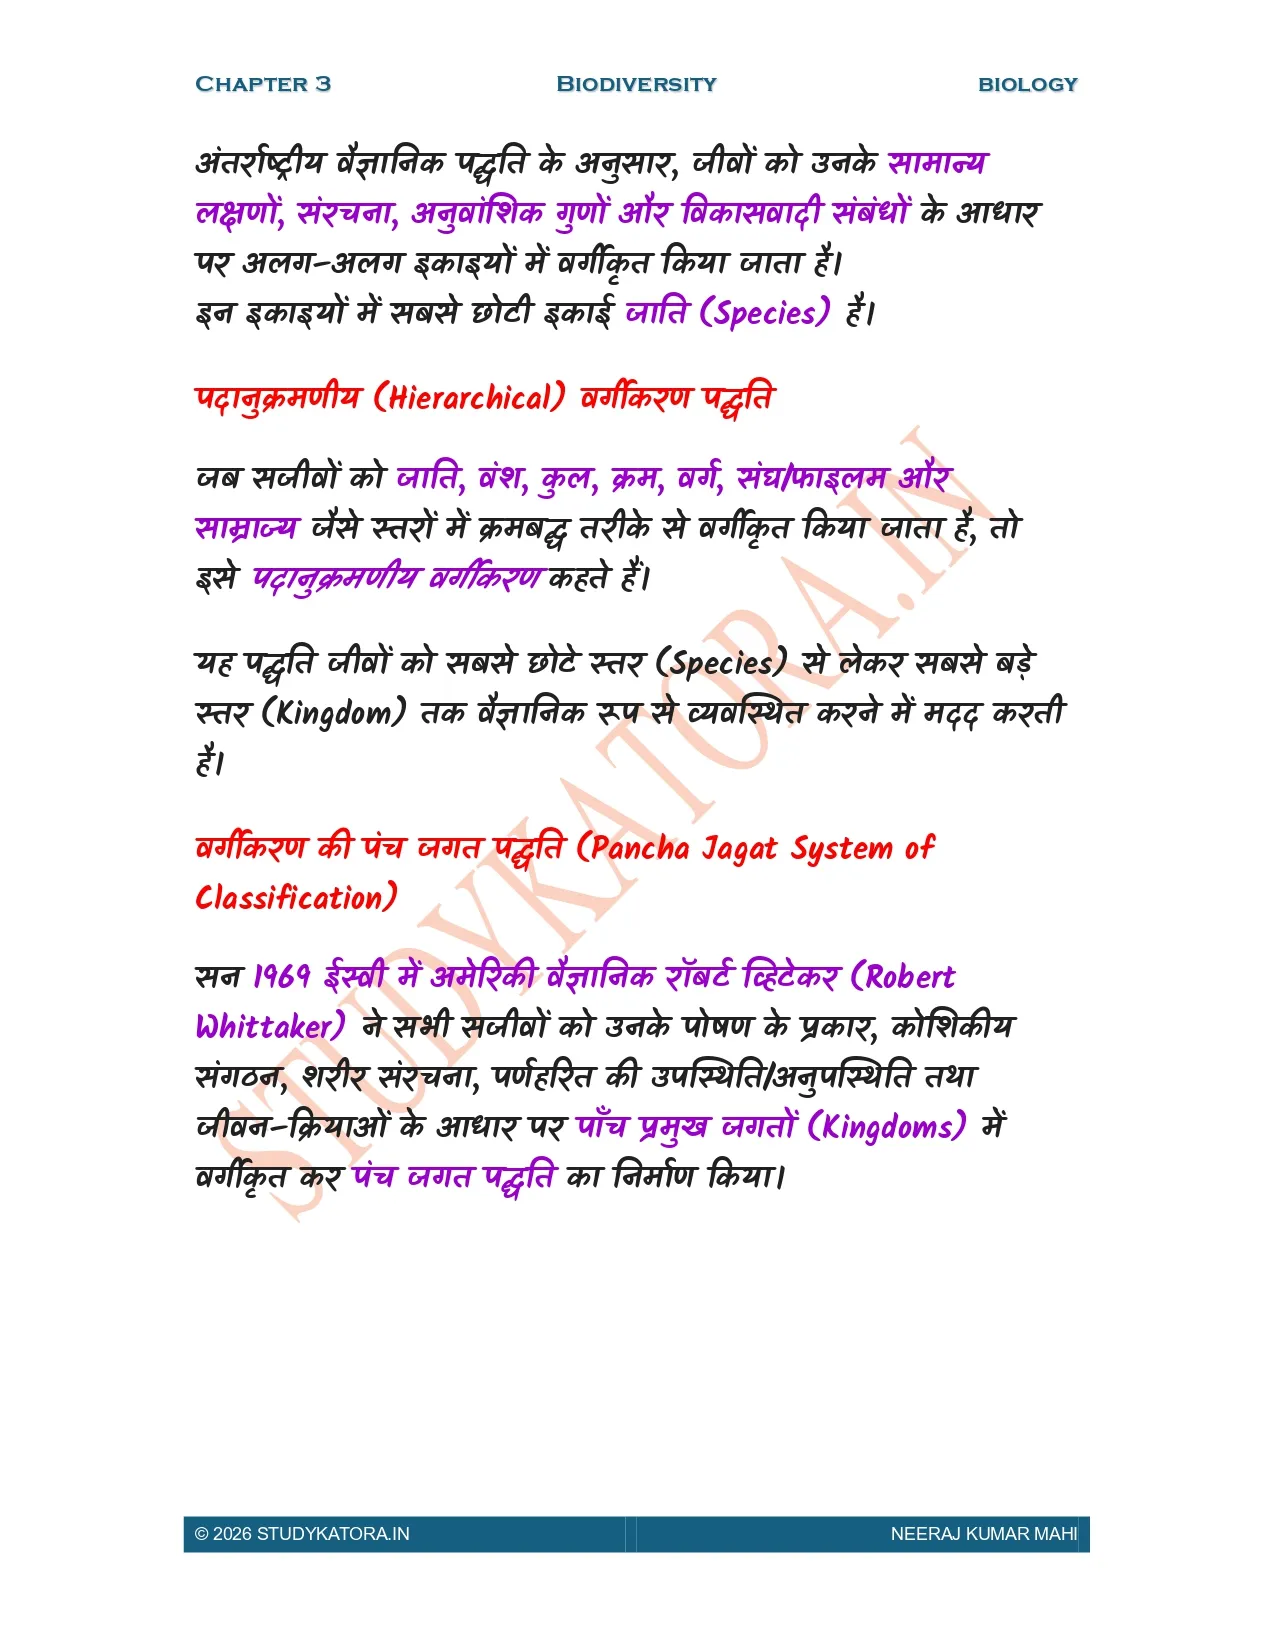 CHAPTER 3 BIODIVERSITY BIOLOGY
अंतर्राष्ट्रीय वैज्ञानिक पद्धति के अनुसार, जीवों को उनके सामान्य
लक्षणों, संरचना, अनुवांशिक गुणों और विकासवादी संबंधों के आधार
पर अलग–अलग इकाइयों में वर्गीकृत किया जाता है।
इन इकाइयों में सबसे छोटी इकाई जाति (Species) है।
पदानुक्रमणीय (Hierarchical) वर्गीकरण पद्धति
जब सजीवों को जाति, वंश, कुल, क्रम, वर्ग, संघ/फाइलम और
साम्राज्य जैसे स्तरों में क्रमबद्ध तरीके से वर्गीकृत किया जाता है, तो
इसे पदानुक्रमणीय वर्गीकरण कहते हैं।
यह पद्धति जीवों को सबसे छोटे स्तर (Species) से लेकर सबसे बड़े
स्तर (Kingdom) तक वैज्ञानिक रूप से व्यवस्थित करने में मदद करती
है।
वर्गीकरण की पंच जगत पद्धति (Pancha Jagat System of
Classification)
सन 1969 ईस्वी में अमेरिकी वैज्ञानिक रॉबर्ट व्हिटेकर (Robert
Whittaker) ने सभी सजीवों को उनके पोषण के प्रकार, कोशिकीय
संगठन, शरीर संरचना, पर्णहरित की उपस्थिति/अनुपस्थिति तथा
जीवन–क्रियाओं के आधार पर पाँच प्रमुख जगतों (Kingdoms) में
वर्गीकृत कर पंच जगत पद्धति का निर्माण किया।
STUDYKATORA.IN
© 2026 STUDYKATORA.IN NEERAJ KUMAR MAHI